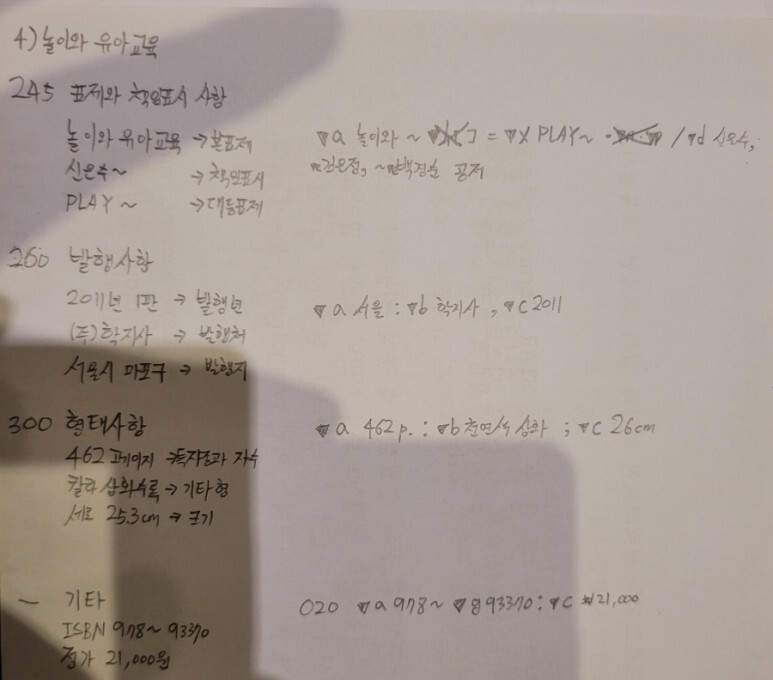 4) 놀이와 유아교육
245 표제와 책임표시 사항
놀이와 유아교육 → 본표제 ▼a 놀이와 ~ = ▼x PLAY~ / ▼d 신은수,
신은수~ → 책임표시 ▼e권은정, ~▼e백경순 공저
PLAY ~ → 대등표제
260 발행사항
2011년 1판 → 발행년 ▼a 서울 : ▼b 학지사 , ▼c 2011
(주)학지사 → 발행처
서울시 마포구 → 발행지
300 형태사항 ▼a 462 p. : ▼b 천연색 삽화 ; ▼c 26cm
462 페이지 →
칼라 삽화수록 → 기타형
세로 25.3cm → 크기
— 기타 020 ▼a 978~ ▼g 93370 : ▼c ₩21,000
ISBN 978~ 93370
정가 21,000원